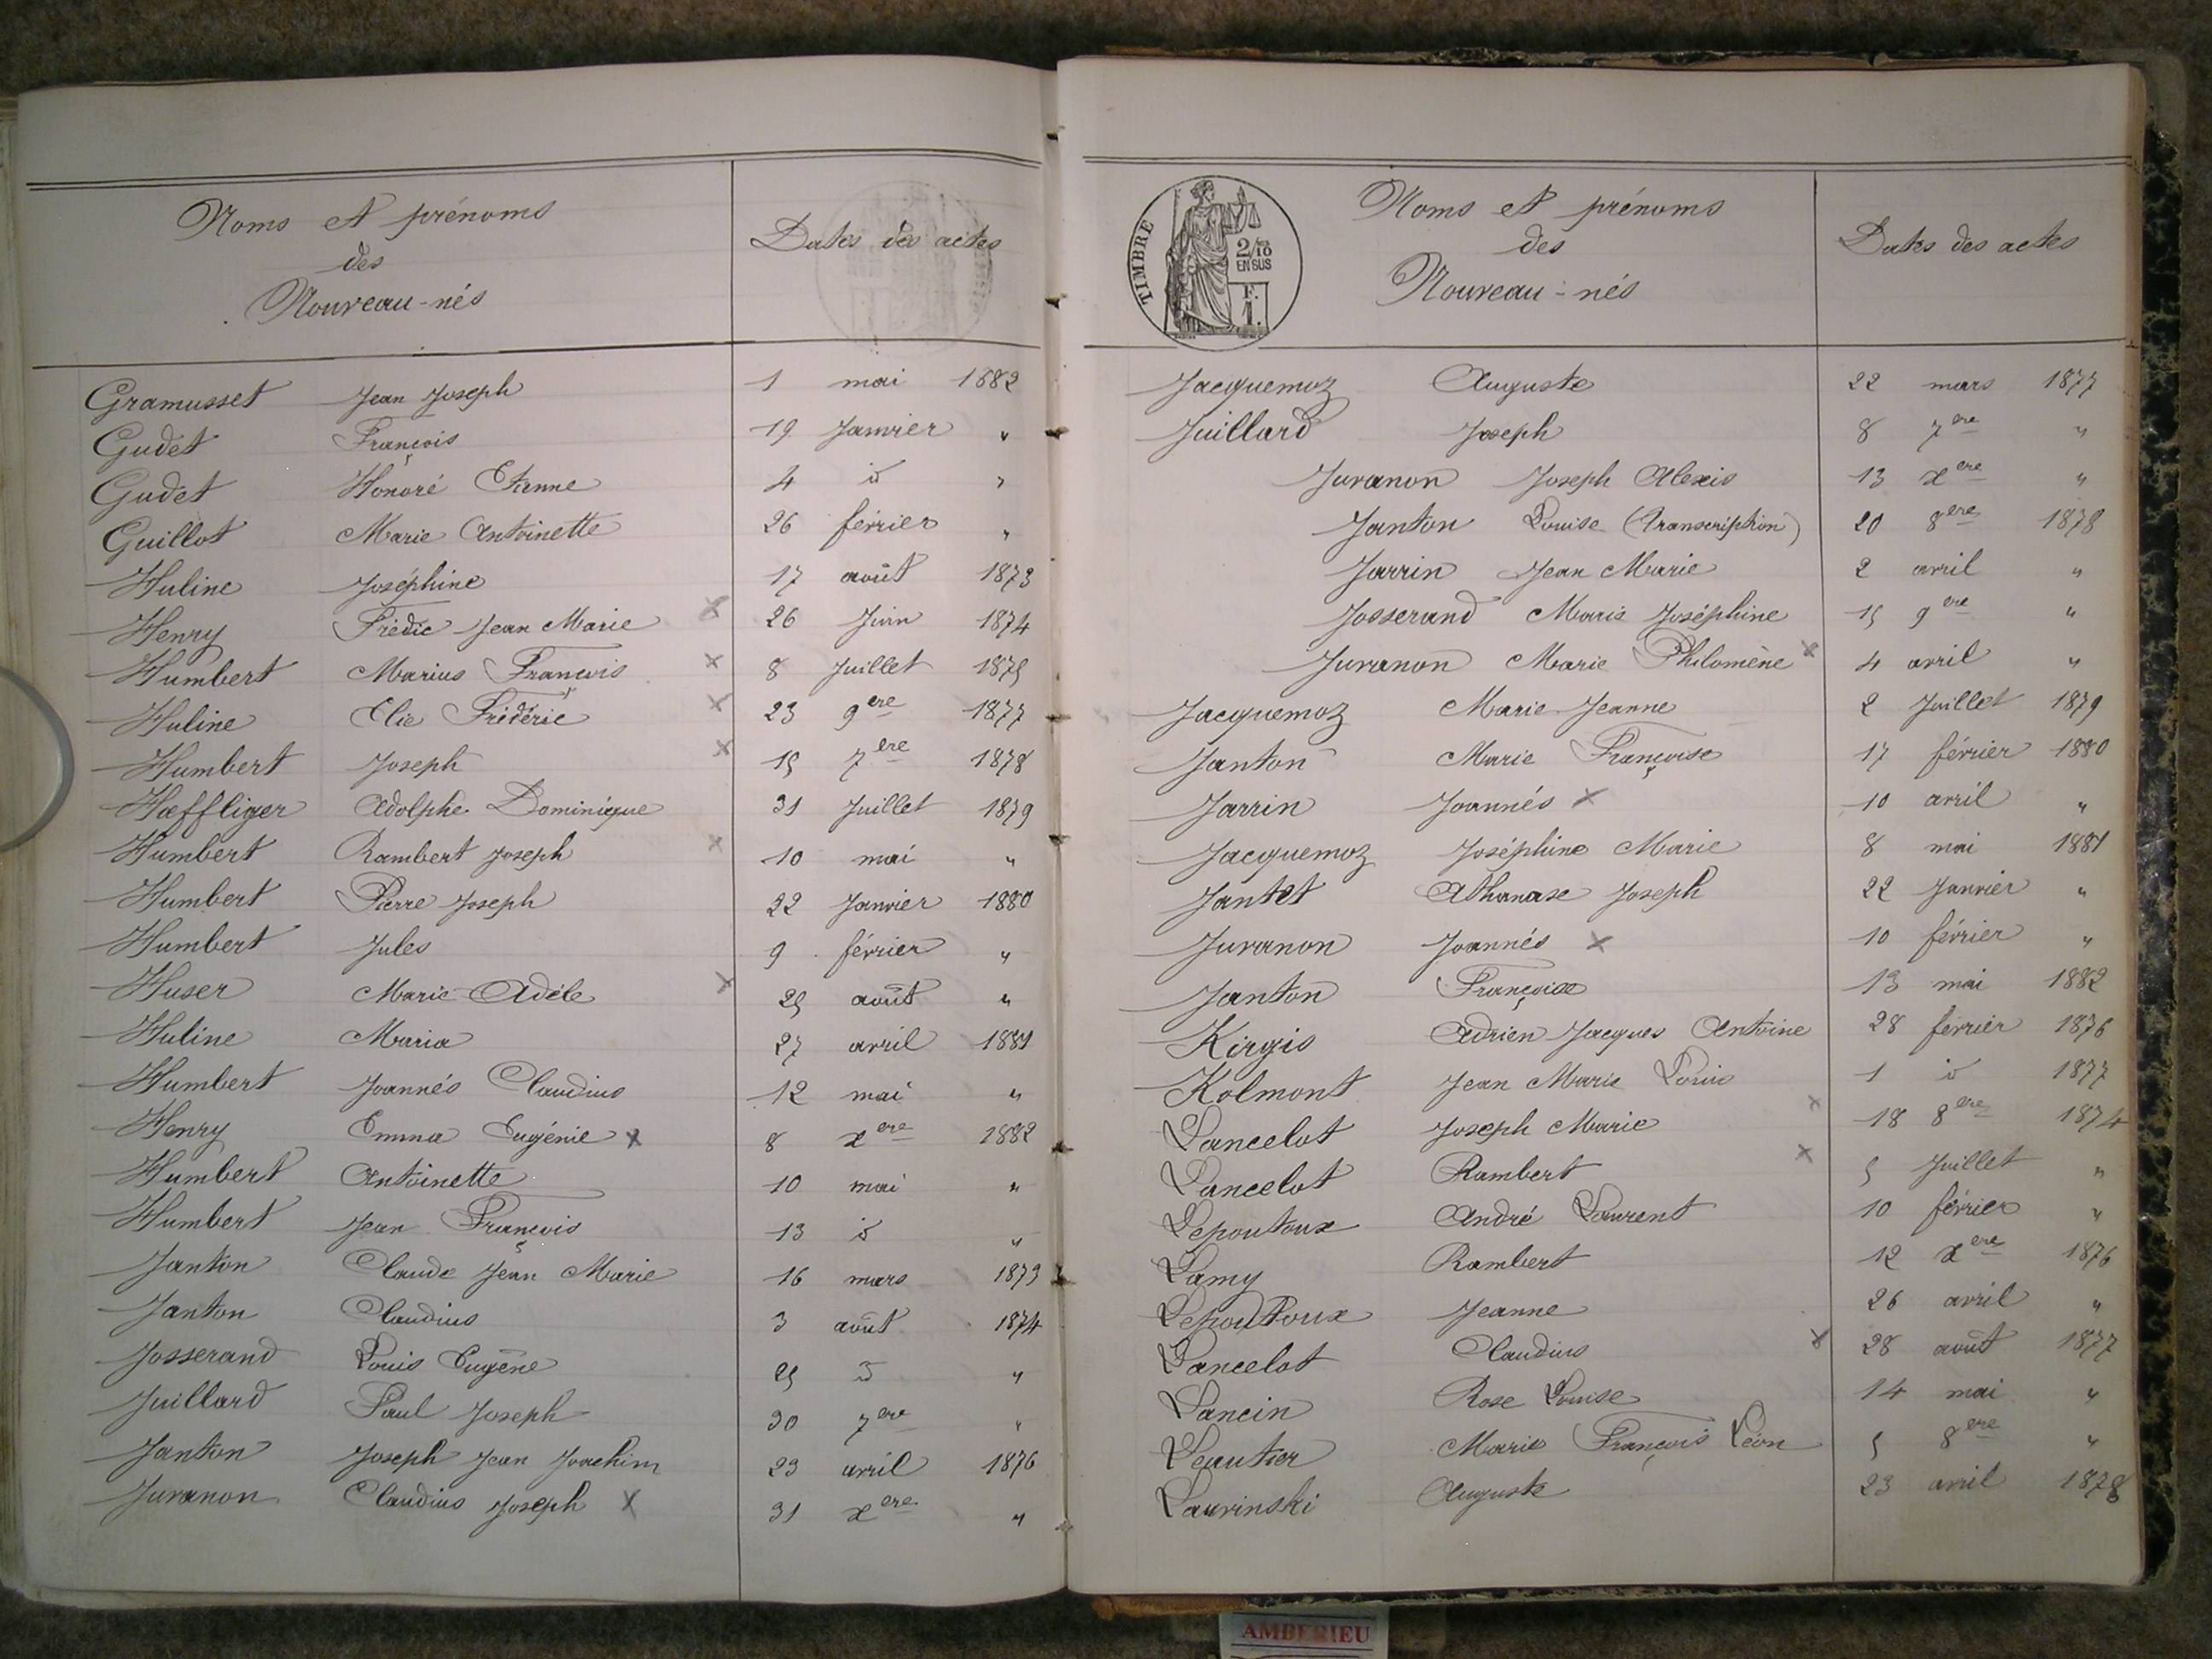 Noms et prénoms
des
Nouveau-nés
Dates des actes
Gramusset Jean Joseph 1 mai 1882
Gudet François 19 Janvier "
Gudet Honoré Etienne 4 id "
Guillot Marie Antoinette 26 février "
Huline Joséphine 17 août 1873
Henry Frédic Jean Marie x 26 Juin 1874
Humbert Marius François x 8 Juillet 1875
Huline Elie Frédéric x 23 9ere 1877
Humbert Joseph x 15 7ere 1878
Hæffliger Adolphe Dominique 31 Juillet 1879
Humbert Rambert Joseph x 10 mai "
Humbert Pierre Joseph 22 Janvier 1880
Humbert Jules 9 février "
Huser Marie Adèle x 25 août "
Huline Maria 27 avril 1881
Humbert Joannés Claudius 12 mai "
Henry Emma Eugénie x 8 xere 1882
Humbert Antoinette 10 mai "
Humbert Jean François 13 id "
Janton Claude Jean Marie 16 mars 1873
Janton Claudius 3 août 1874
Josserand Louis Eugène 25 id "
Juillard Paul Joseph 30 7ere "
Janton Joseph Jean Joachim 23 avril 1876
Juvanon Claudius Joseph x 31 xere "
TIMBRE
2/10
EN SUS
F.
1.
Noms et prénoms
des
Nouveau-nés
Dates des actes
Jacquemoz Auguste 22 mars 1877
Juillard Joseph 8 7ere "
Juvanon Joseph Alexis 13 xere "
Janton Louise (Transcription) 20 8ere 1878
Jarrin Jean Marie 2 avril "
Josserand Marie Joséphine 15 9ere "
Juvanon Marie Philomène x 4 avril "
Jacquemoz Marie Jeanne 2 Juillet 1879
Janton Marie Françoise 17 février 1880
Jarrin Joannés x 10 avril "
Jacquemoz Joséphine Marie 8 mai 1881
Jantet Athanase Joseph 22 Janvier "
Juvanon Joannés x 10 février "
Janton Françoise 13 mai 1882
Kirgis Adrien Jacques Antoine 28 février 1876
Kolmont Jean Marie Louis 1 id 1877
Lancelot Joseph Marie x 18 8ere 1874
Lancelot Rambert x 5 Juillet "
Lepoutoux André Laurent 10 février "
Lamy Rambert 12 xere 1876
Lepoutoux Jeanne 26 avril "
Lancelot Claudius x 28 août 1877
Lancin Rose Louise 14 mai "
Leautier Marie François Léon 5 8ere "
Laurinski Auguste 23 avril 1878
AMBERIEU